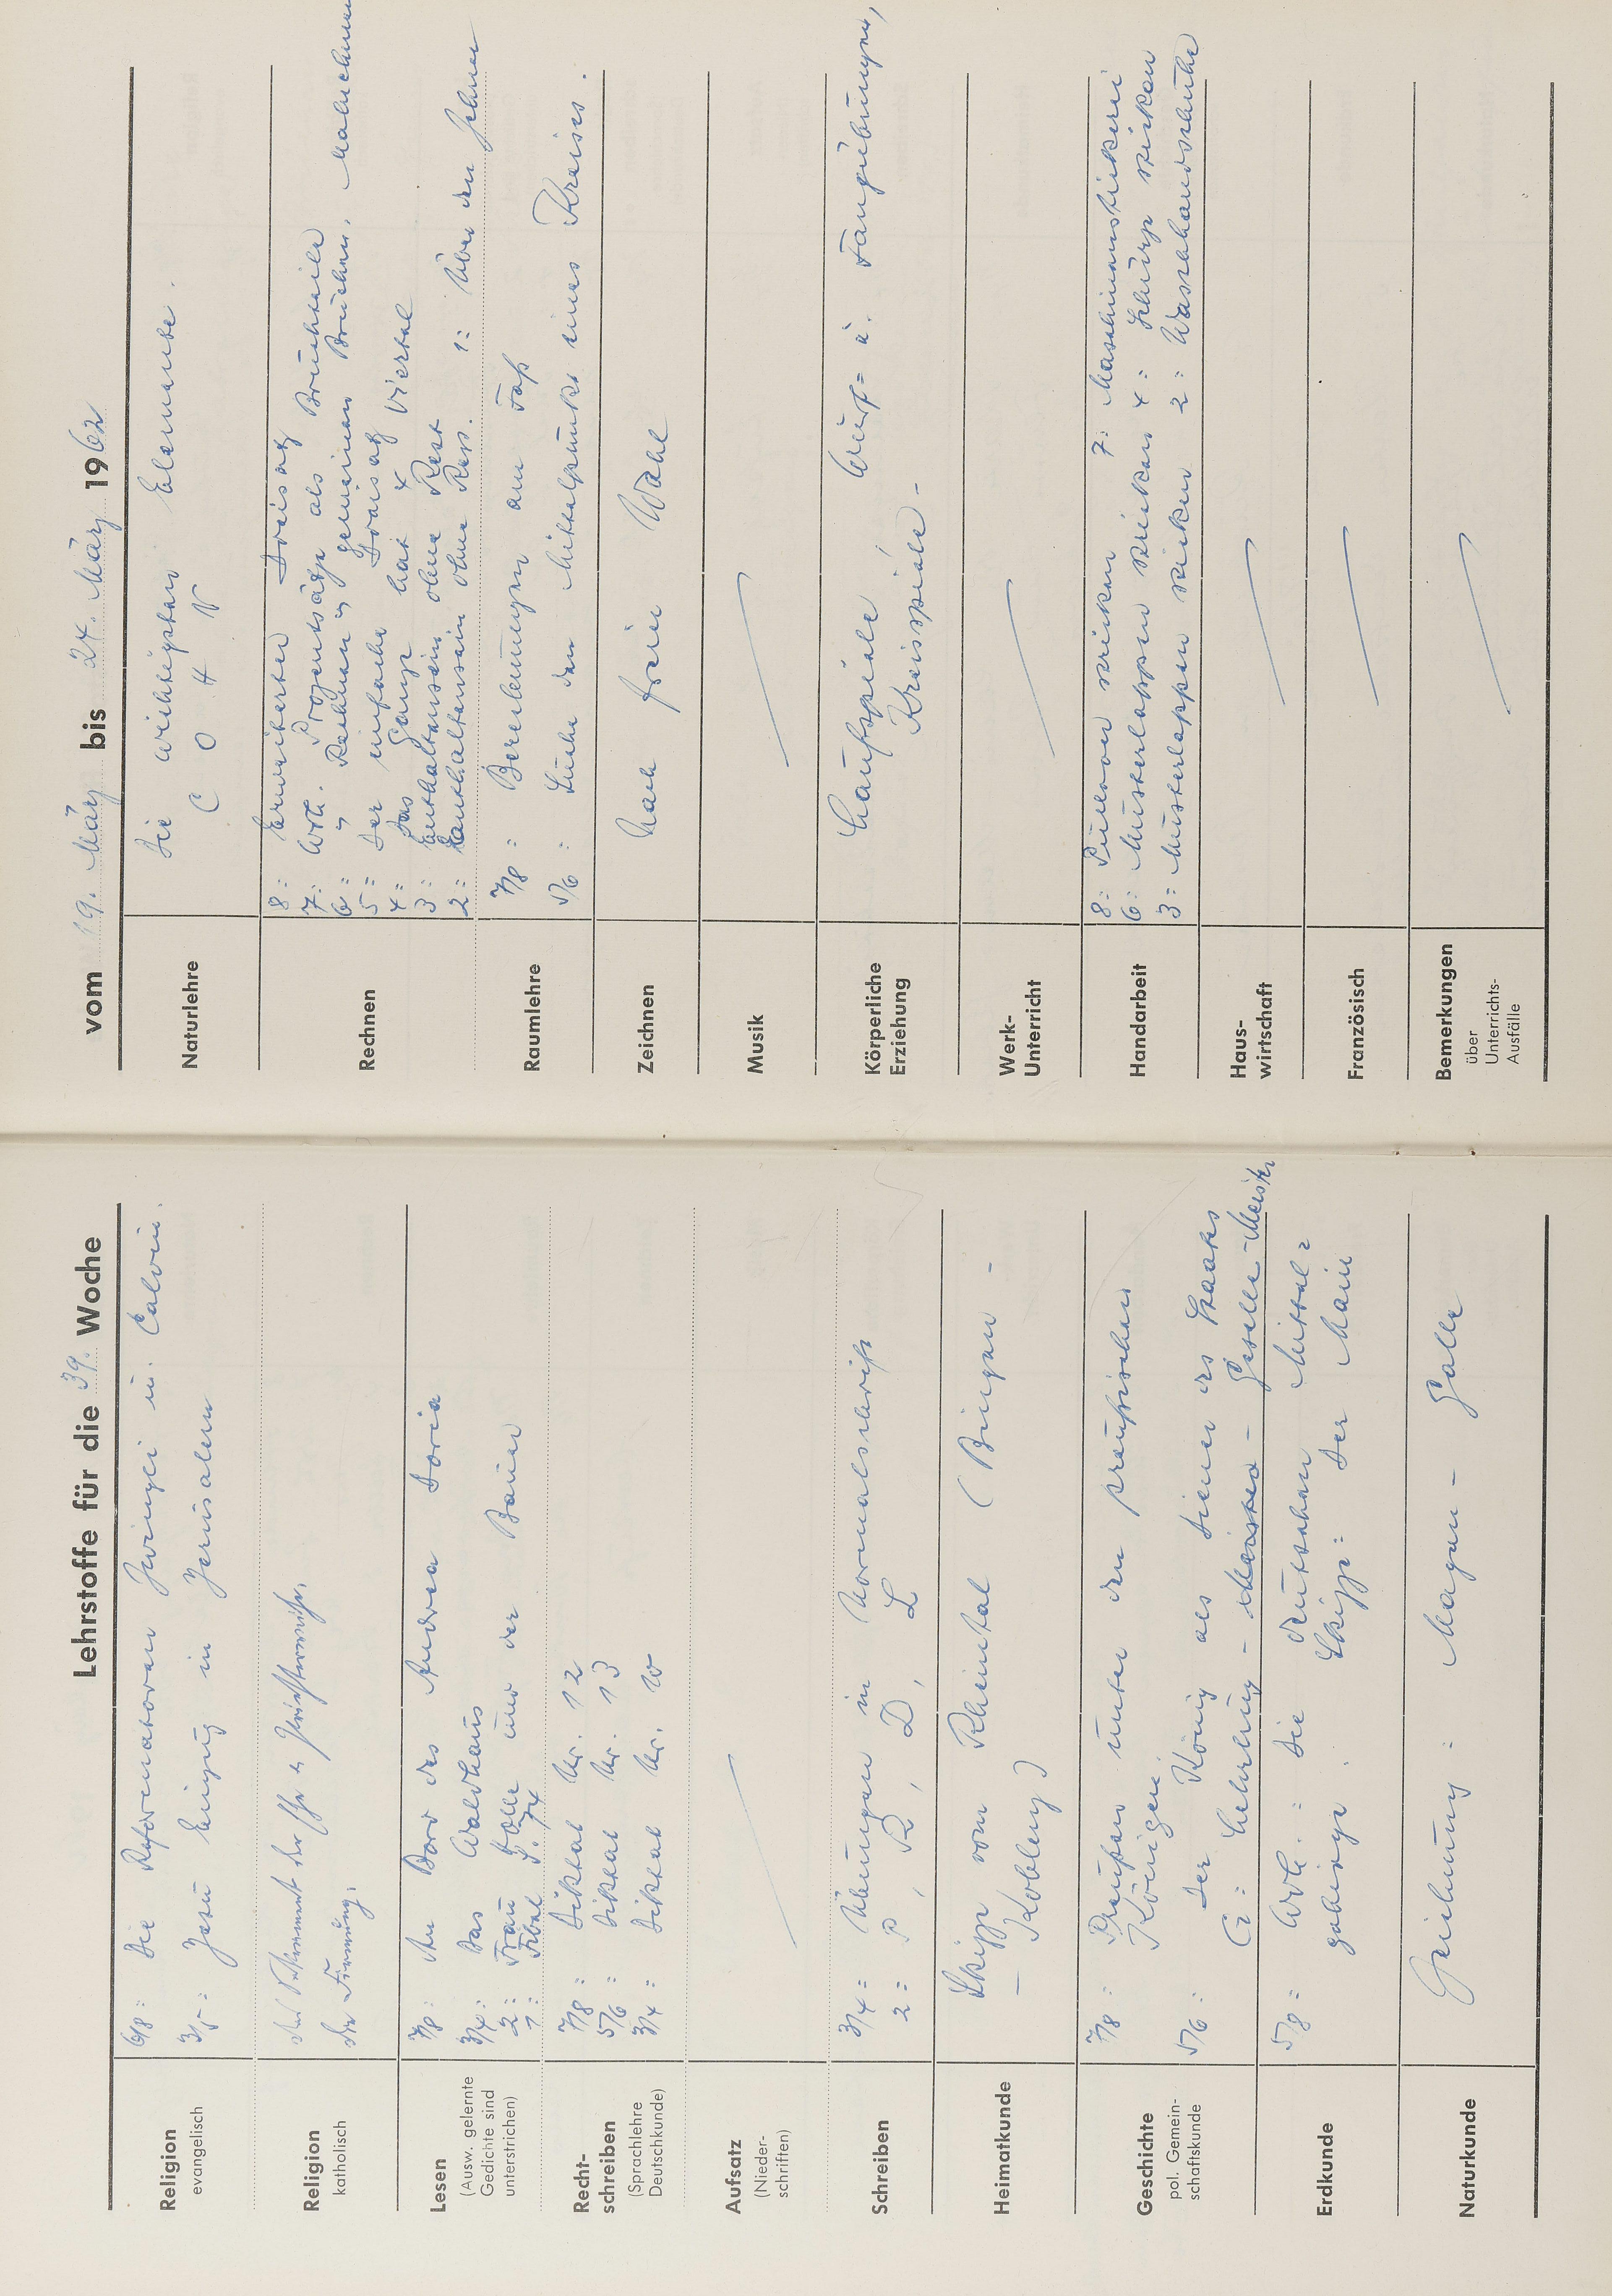 Lehrstoffe für die 39. Woche
Religion
evangelisch
6/8: Die Reformatoren Zwingli u. Calvin.
3/5: Jesu Einzug in Jerusalem
Religion
katholisch
Das Sakrament der Ehe u. Priesterweihe,
der Firmung.
Lesen
(Ausw. gelernte
Gedichte sind
unterstrichen)
7/8: An Bord des Andrea Doria
3/4: Das Waldhaus
2: Frau Holle und der Bauer
1: Fibel S. 74
Recht-
schreiben
(Sprachlehre
Deutschkunde)
7/8: Diktat Nr. 12
5/6: Diktat Nr. 13
3/4: Diktat Nr. 10
Aufsatz
(Nieder-
schriften)
Schreiben
3/4: Übungen in Normalschrift
2: P, R, D, L
Heimatkunde
Skizze vom Rheintal (Bingen -
- Koblenz)
Geschichte
pol. Gemein-
schaftskunde
7/8: Preußen unter den preußischen
Königen
5/6: Der König als Diener des Staates
G: Lehrling - Meister - Geselle - Meister
Erdkunde
5/8: Wdh.: Die deutschen Mittel=
gebirge. Skizze: Der Main
Naturkunde
Zeichnung: Magen - Galle
vom 19. März bis 24. März 1962
Naturlehre
Die wichtigsten Elemente.
C O H N
Rechnen
8: Erweiterter Dreisatz
7: Wdh. Prozentsätze als Bruchteile
6: " Rechnen m. gemeinen Brüchen. Malnehmen
5: Der einfache Dreisatz
4: Das Ganze hat 4 Viertel
3: Enthaltensein ohne Rest
2: Enthaltensein ohne Rest. 1: Über den Zehner
Raumlehre
7/8: Berechnungen am Faß
5/6: Suche den Mittelpunkt eines Kreises.
Zeichnen
Nach freier Wahl
Musik
Körperliche
Erziehung
Laufspiele, Wurf= u. Fangübungen,
Kreisspiele -
Werk-
Unterricht
Handarbeit
8: Pullover stricken 7: Maschinenstickerei
6: Musterlappen stricken 4: Schürze sticken
3: Musterlappen sticken 2: Waschhandschuhe
Haus-
wirtschaft
Französisch
Bemerkungen
über
Unterrichts-
Ausfälle